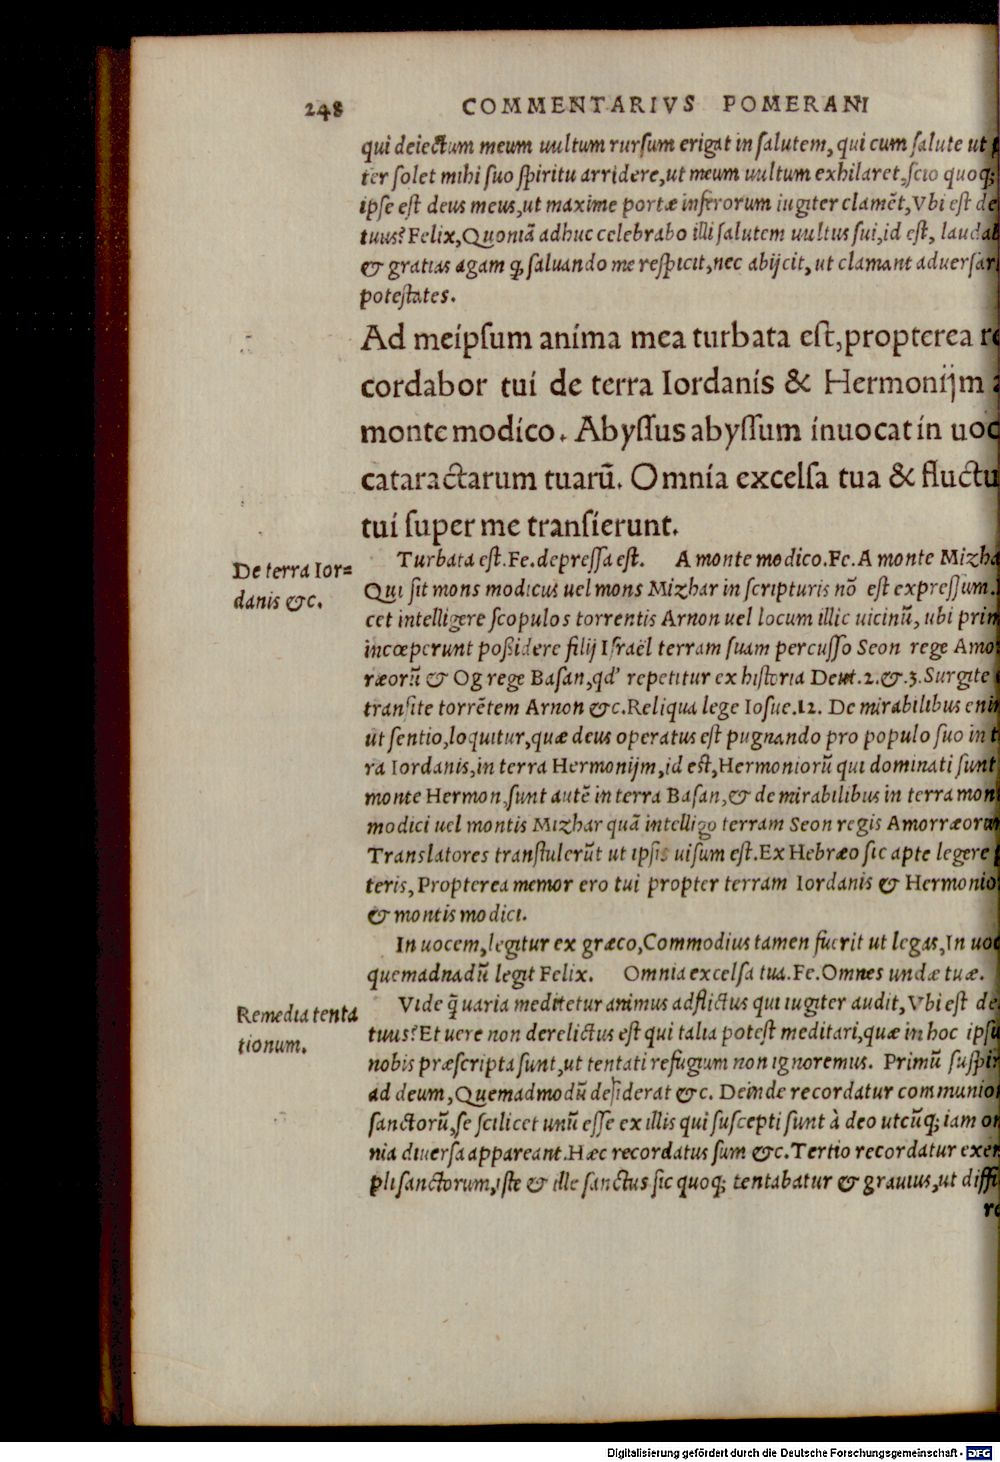 248 COMMENTARIVS POMERANI
qui deiectum meum uultum rursum erigat in salutem, qui cum salute ut
ter solet mihi suo spiritu arridere, ut meum uultum exhilaret, scio quoq;
ipse est deus meus, ut maxime portæ inferorum iugiter clamẽt, Vbi est de
tuus? Felix, Quoniã adhuc celebrabo illi salutem uultus sui, id est, laudab
& gratias agam q̃ saluando me respicit, nec abijcit, ut clamant aduersar
potestates.
Ad meipsum anima mea turbata est, propterea re
cordabor tui de terra Iordanis & Hermonijm
monte modico. Abyssus abyssum inuocat in uoc
cataractarum tuarũ. Omnia excelsa tua & fluctu
tui super me transierunt.
De terra Ior=
danis &c.
Turbata est. Fe. depressa est. A monte modico. Fe. A monte Mizha
Qui sit mons modicus uel mons Mizhar in scripturis nõ est expressum.
cet intelligere scopulos torrentis Arnon uel locum illic uicinũ, ubi prim
incœperunt possidere filij Israël terram suam percusso Seon rege Amo
ræorũ & Og rege Basan, qd' repetitur ex historia Deut. 2. &. 3. Surgite
transite torrẽtem Arnon &c. Reliqua lege Iosue. 12. De mirabilibus enim
ut sentio, loquitur, quæ deus operatus est pugnando pro populo suo in t
ra Iordanis, in terra Hermonijm, id est, Hermoniorũ qui dominati sunt
monte Hermon, sunt autẽ in terra Basan, & de mirabilibus in terra mon
modici uel montis Mizhar quã intelligo terram Seon regis Amorræorum
Translatores transtulerũt ut ipsis uisum est. Ex Hebræo sic apte legere
teris, Propterea memor ero tui propter terram Iordanis & Hermonio
& montis modici.
In uocem, legitur ex græco, Commodius tamen fuerit ut legas, In uoc
quemadnadũ legit Felix. Omnia excelsa tua. Fe. Omnes undæ tuæ.
Remedia tenta
tionum.
Vide q̃ uaria meditetur animus adflictus qui iugiter audit, Vbi est de
tuus? Et uere non derelictus est qui talia potest meditari, quæ in hoc ipsu
nobis præscripta sunt, ut tentati refugium non ignoremus. Primũ suspir
ad deum, Quemadmodũ desiderat &c. Deinde recordatur communio
sanctorũ, se scilicet unũ esse ex illis qui suscepti sunt à deo utcũq; iam om
nia diuersa appareant. Hæc recordatus sum &c. Tertio recordatur exem
pli sanctorum, iste & ille sanctus sic quoq; tentabatur & grauius, ut diffi
re
Digitalisierung gefördert durch die Deutsche Forschungsgemeinschaft - DFG